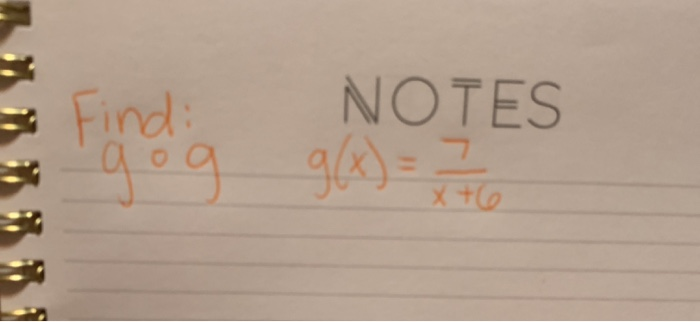 NOTES
Find:
g∘g g(x) = 7/(x+6)